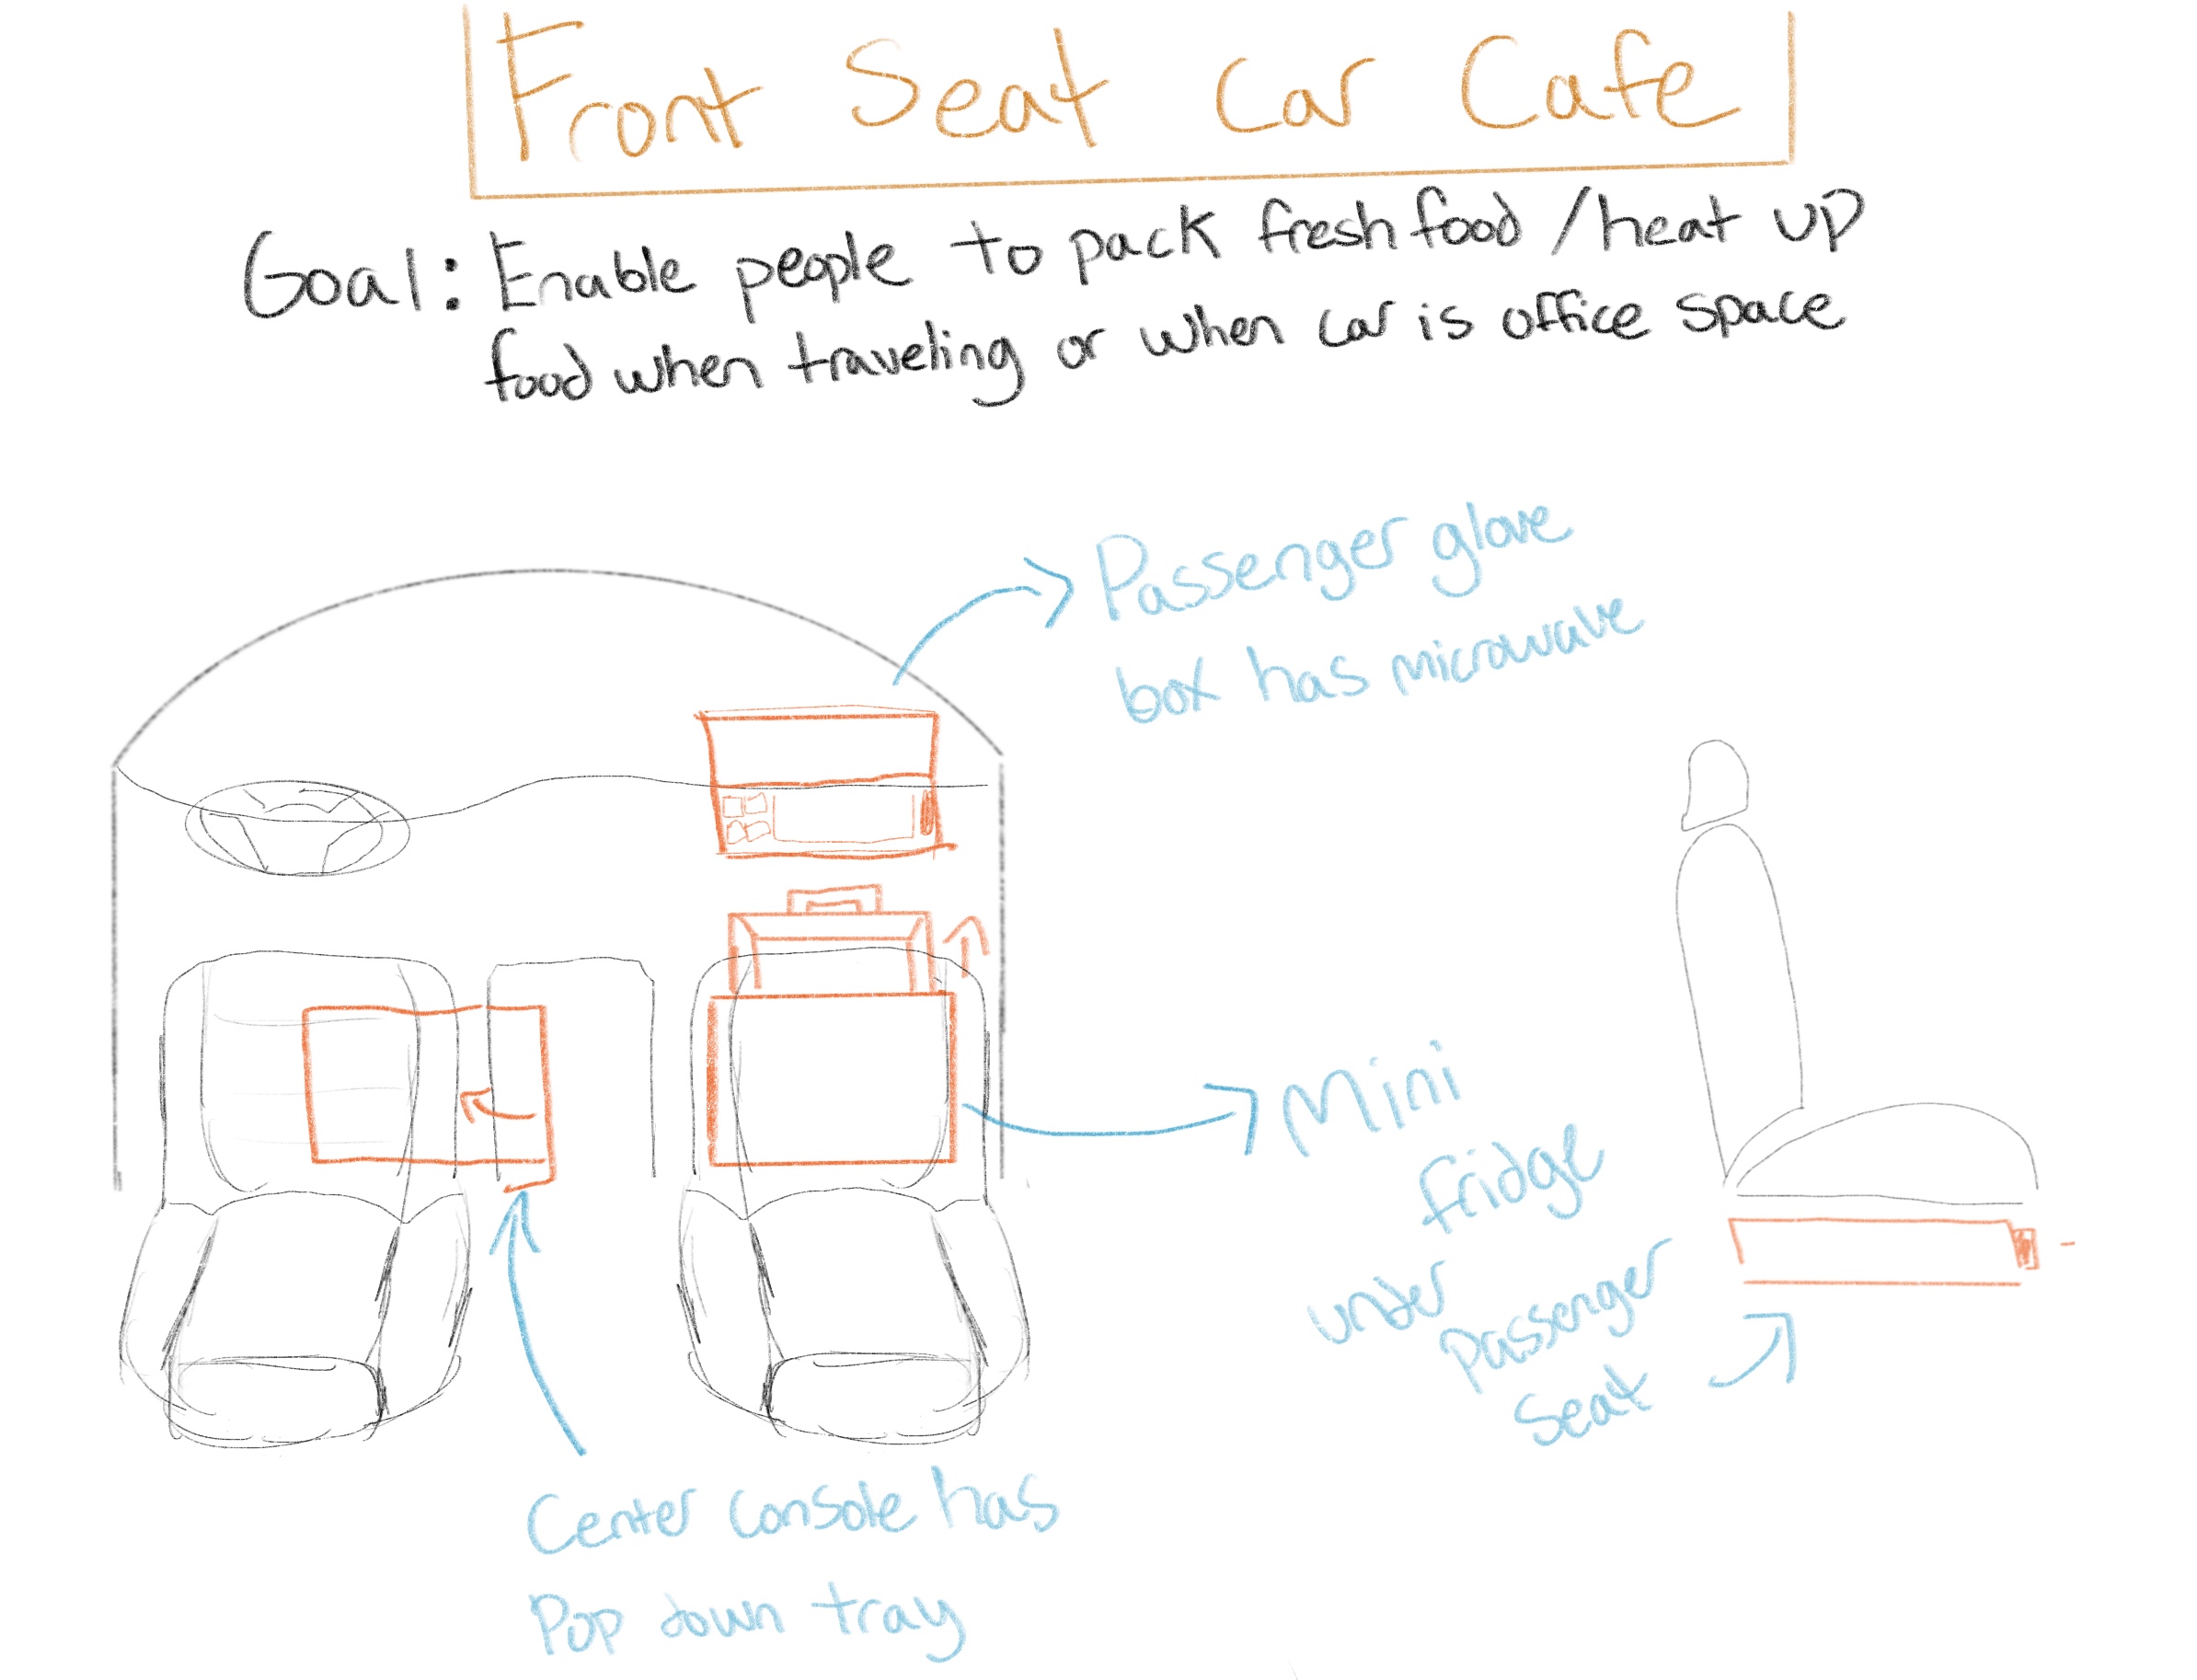 Front Seat Car Cafe
Goal: Enable people to pack fresh food / heat up
food when traveling or when car is office space
Passenger glove
box has microwave
Mini
fridge
under
passenger
seat
Center console has
Pop down tray